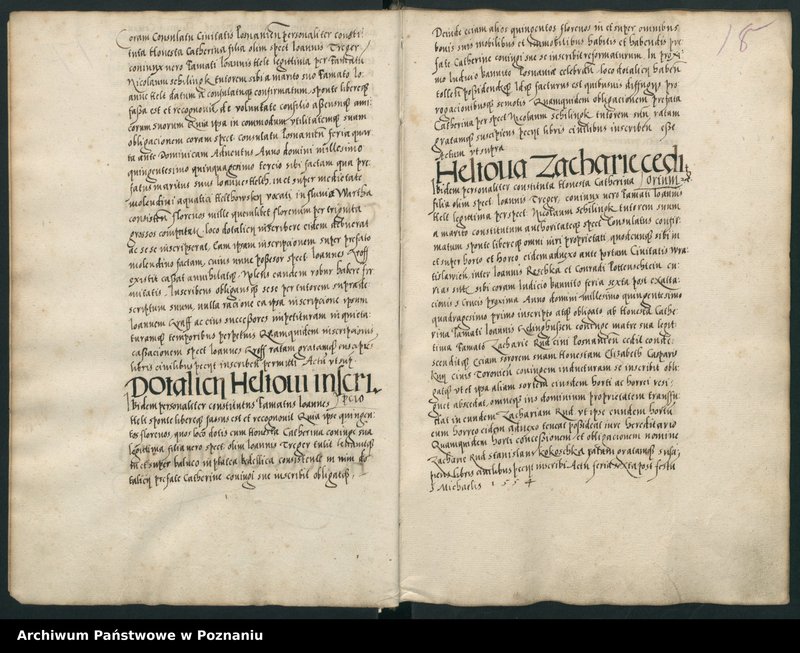 Coram Consulatu Civitatis Posnanien personaliter consti-
tuta Honesta Catherina filia olim spect Ioannis Treger
coniunx vero Famati Ioannis Helt legittima per Famatum
Nicolaum schilinok tutorem sibi a marito suo Famato Io
anne Helt datum consulatuq confirmatum sponte libereq
fassa est et recognovit de voluntate consilio assensuq ami:
corum suorum Quia ipsa in commodum utilitatemq suam
obligacionem coram spect Consulatu Posnanien feria quar
ta ante Dominicam Adventus Anno domini millesimo
quingentesimo quinquagesimo tercio sibi factam qua pre
fatus maritus suus Ioannes Helth in et super medietate
molendini aquatici vocati in fluvio Wartha
consisten florenos mille quemlibet florenum per triginta
grossos computan loco dotalicii inscribere eidem debuerat
ac se se inscripserat Eam ipsam inscripcionem super prefato
molendino factam, cuius nunc possessor spect Ioannes Kroff
existit cassat annihilatq Nolens eandem robur habere fir
mitatis. Inscribens obligansq sese per tutorem suprade:
scriptum suum, nulla racione ea ipsa inscripcione ipsum
Ioannem Kroff ac eius successores impetituram inquieta:
turamq temporibus perpetuis Quamquidem inscripcionis
cassacionem spect Ioannes Kroff ratam gratamq suscipiens
libris civilibus petiit inscriben permitti Actu ut sup
Dotalicii Heliovi inscri.
Ibidem personaliter constitutus Famatus Ioannes pcio
Helt sponte libereq fassus est et recognovit Quia ipse quingen:
tos florenos, quos loco dotis cum Honesta Catherina coniuge sua
legittima filia vero spect olim Ioannis Treger tulit
in et super balneo in platea consistente in vim do
talicii prefate Catherine coniugi sue inscribit obligatq,
18
Deinde eciam alios quingentos florenos in et super omnibus
bonis suis mobilibus et immobilibus habitis et habendis pre
fate Catherine coniugi sue inscribit reformaturum. In proxi:
mo Iudicio bannito Posnaniae celebran loco dotalicii haben
tollen possidendumq Idq facturus est quibusvis diffugiis pro
rogacionibusq semotis Quamquidem obligacionem prefata
Catherina per spect Nicolaum schilinok tutorem sun ratam
gratamq suscipiens petiit libris civilibus inscriben esse
Actum ut supra
Heliova Zacharie cedit
Ibidem personaliter constituta Honesta Catherina (ortum
filia olim spect Ioannis Treger, coniunx vero Famati Ioannis
Helt legittima per spect Nicolaum schilinok tutorem suum
a marito constitutum authoritateq spect Consulatus confir
matum sponte libereq omni iuri proprietati quodcunq sibi in
et super horto et horreo eidem adnexo ante portam Civitatis Wra:
tislavien, inter Ioannis Roschka et Conradi Pottenschtein cu:
rias sitis sibi coram Iudicio bannito feria sexta post exalta:
cionis s crucis proxima Anno domini millesimo quingentesimo
quadragesimo primo inscripto atq obligato ab Honesta Cathe:
rina Famati Ioannis coniuge matre sua legit
tima Famato Zacharie Rud civi Posnanien cedit conde:
scenditq Eciam sororem suam Honestam Elisabeth Caspari
Kun civis Torunien coniugem inducturam se inscribit obli:
gatq ut et ipsa aliam sortem eiusdem horti ac horrei resi:
gnet abscedat, omneq ius dominium proprietatem transfun
dat in eundem Zachariam Rud ut ipse eundem hortum
cum horreo eidem adnexo teneat possideat iure hereditario
Quamquidem horti concessionem et obligacionem nomine
Zacharie Rud stanislaus kokoschka ratam gratamq susci:
piens libris civilibus petiit inscribi Actu feria sexta post festu
s Michaelis 1554
Archiwum Państwowe w Poznaniu